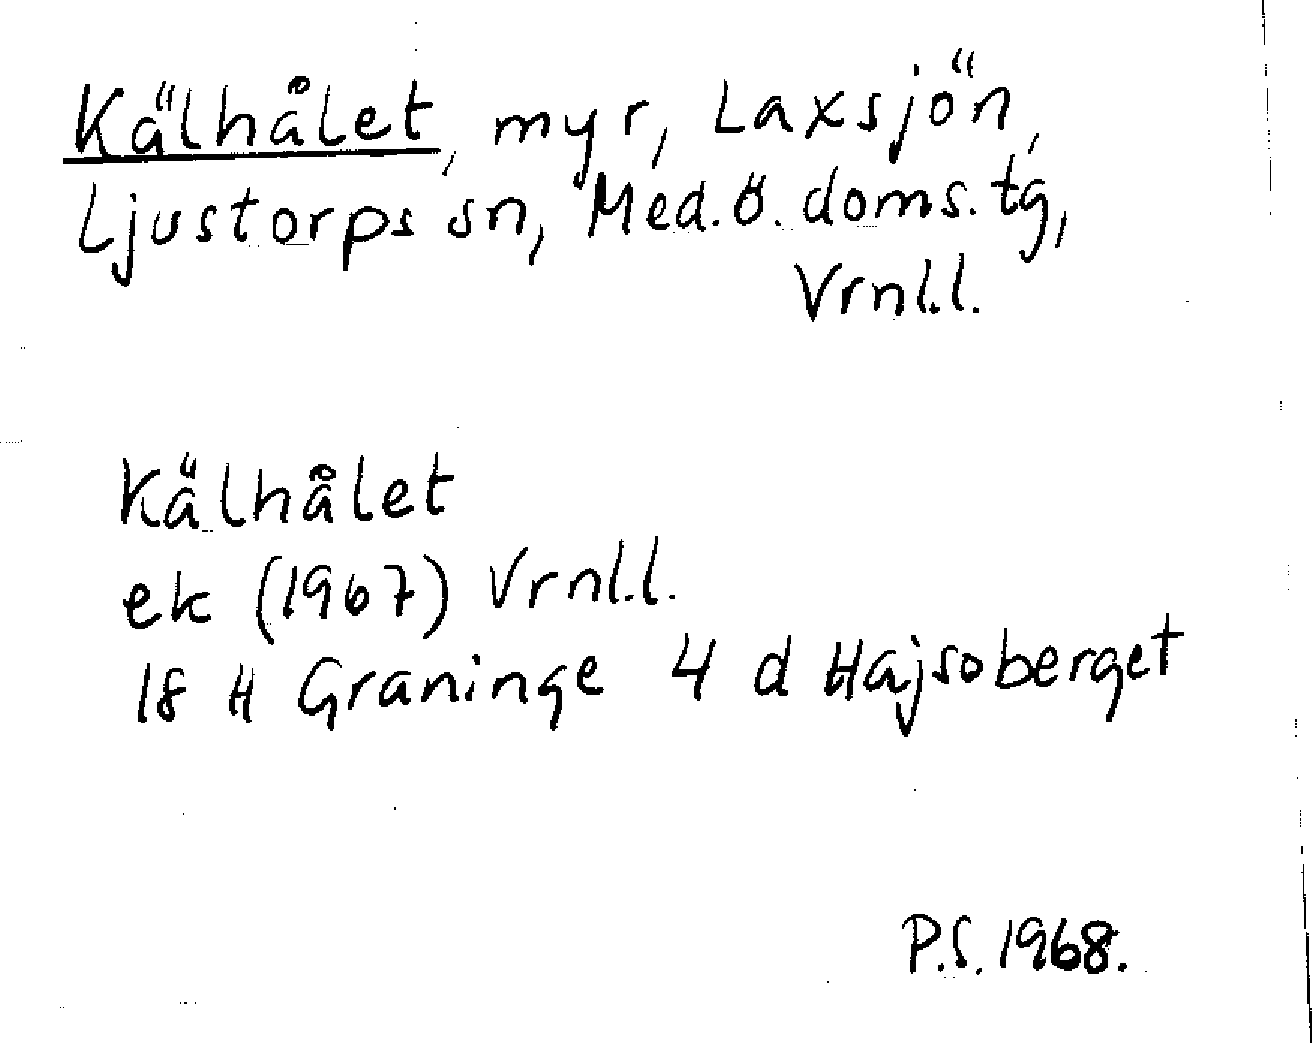 Kälhålet, myr, Laxsjön,
Ljustorps sn, Med.ö.doms.tg,
Vrnl.l.
Kälhålet
ek (1967) Vrnl.l.
18 H Graninge 4 d Hajsoberget
P.S. 1968.